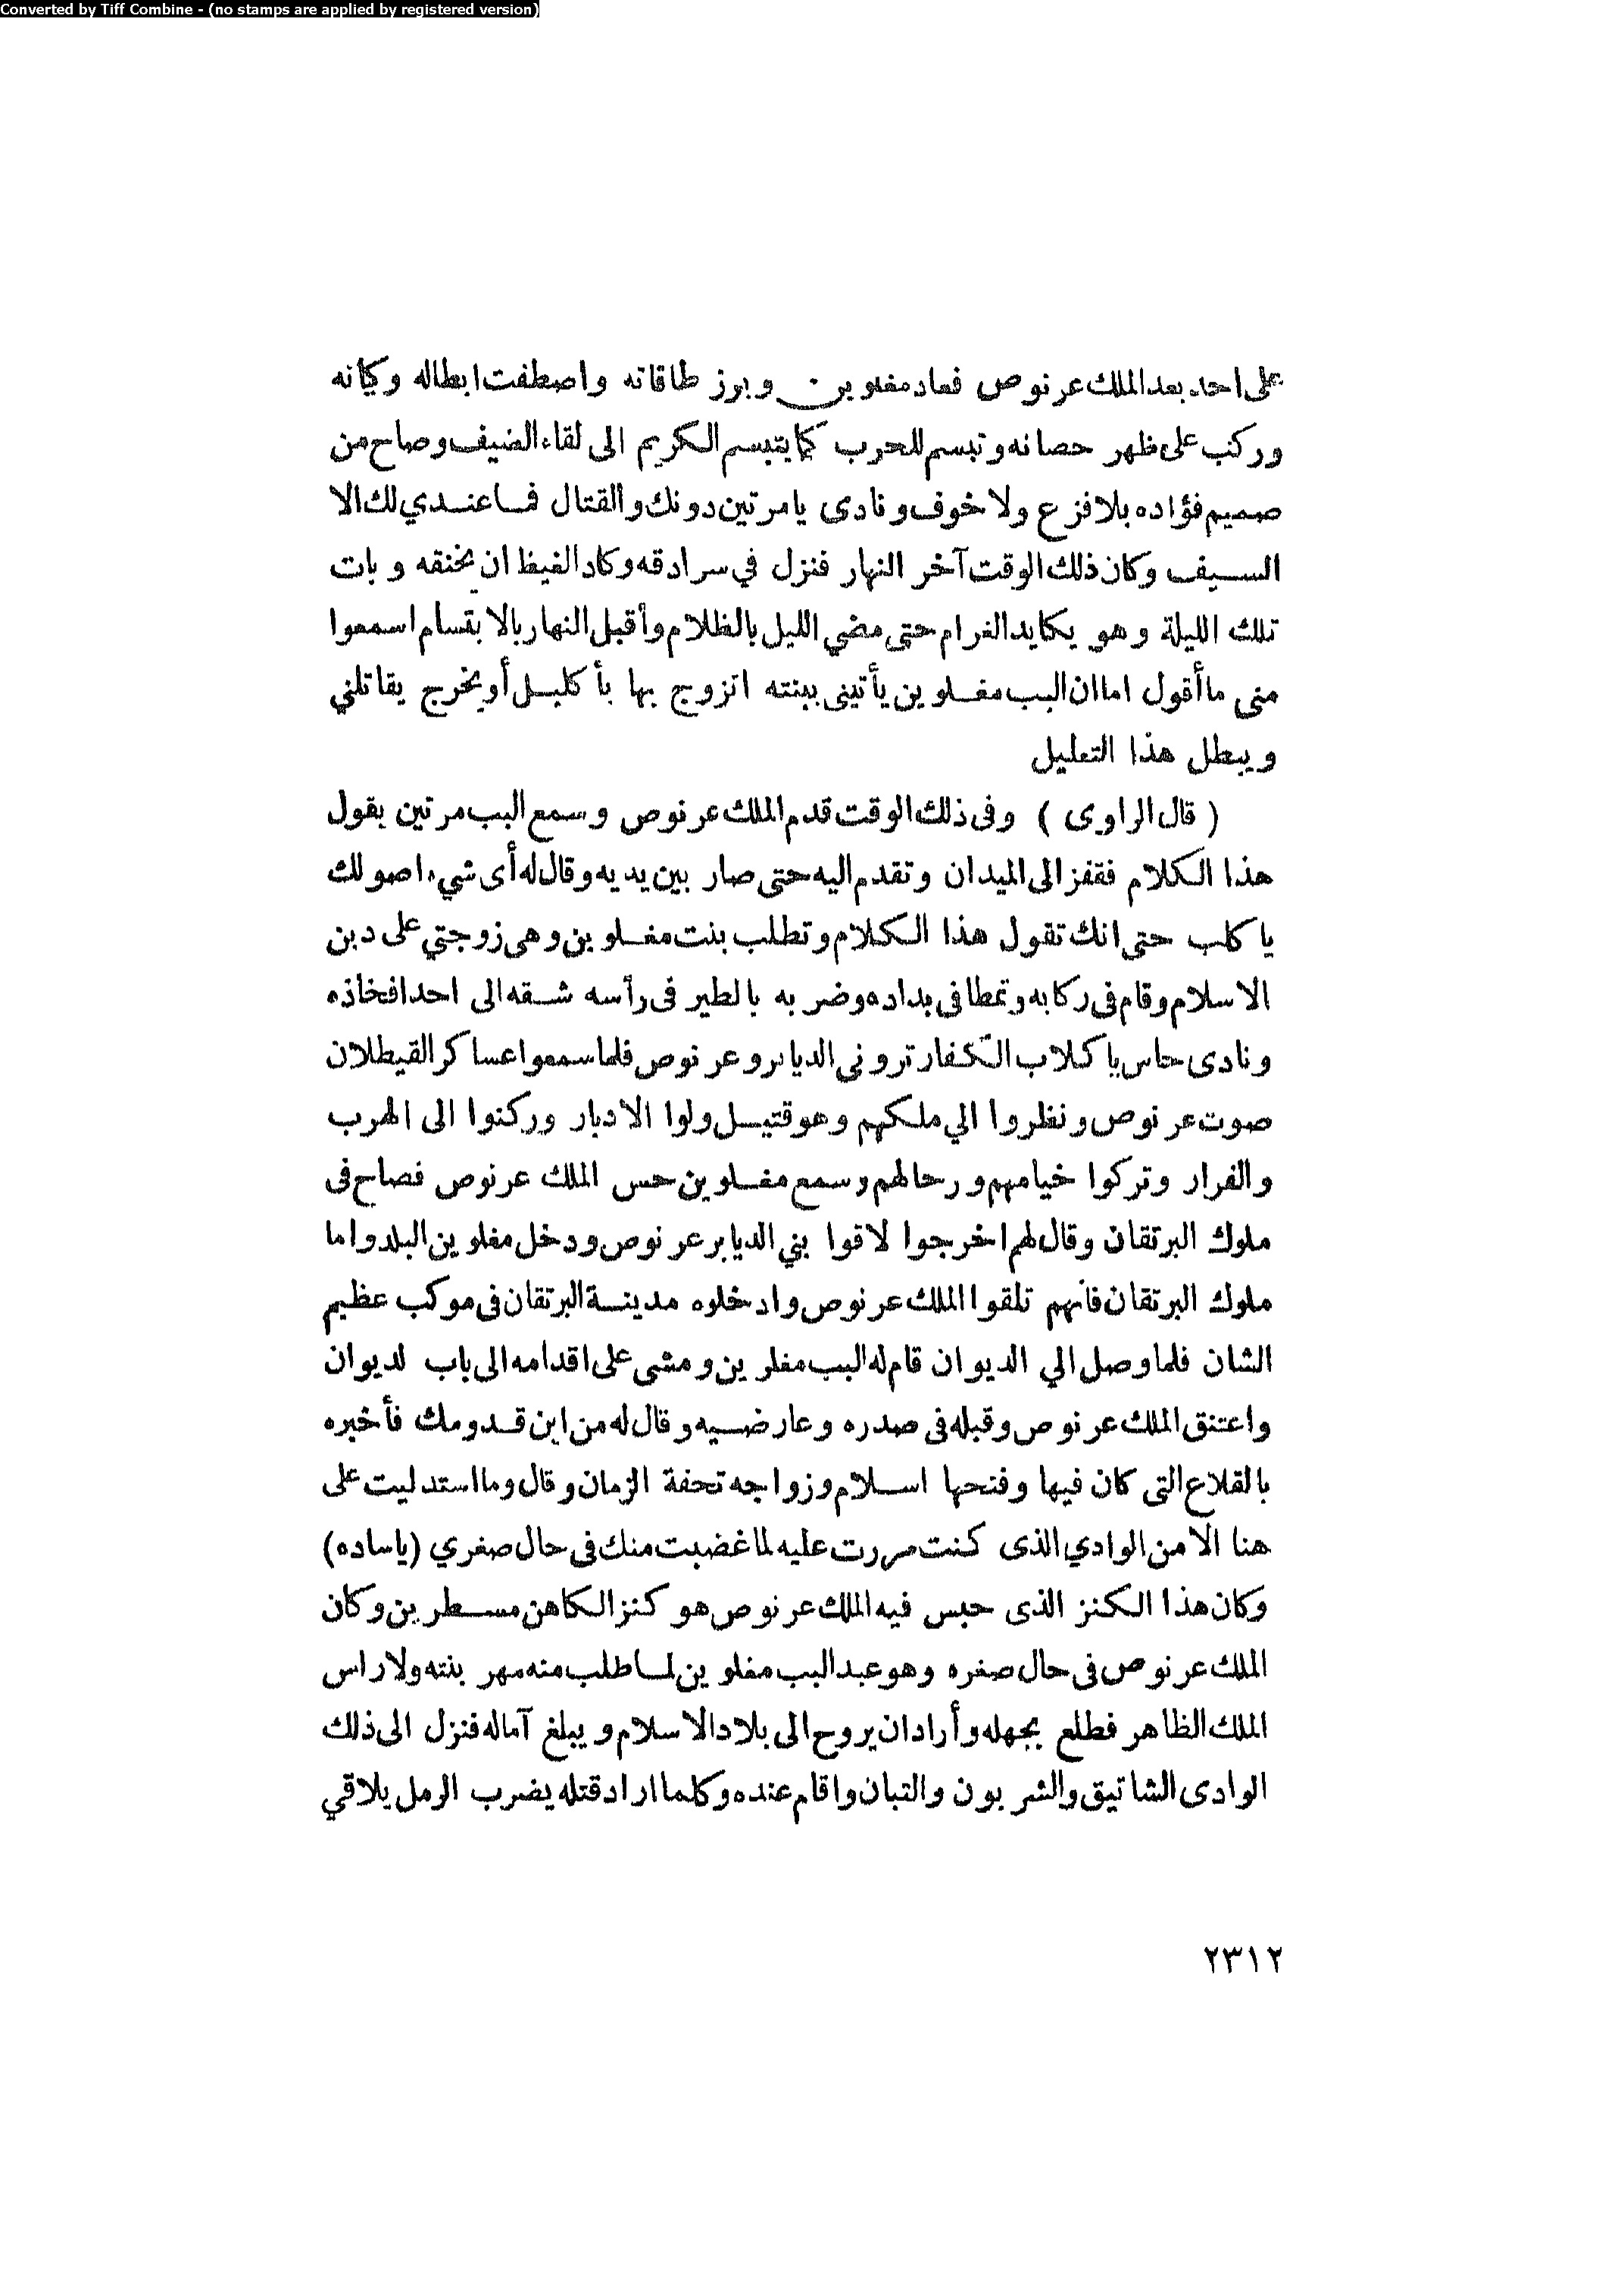 Converted by Tiff Combine - (no stamps are applied by registered version)
على احد بعد الملك عرنوص فعاد مغلوين وبرز طاقاته واصطفت ابطاله وكمانه
وركب على ظهر حصانه وتبسم للحرب كما يتبسم الكريم الى لقاء الضيف وصاح من
صميم فؤاده بلا فزع ولا خوف ونادى يا مرتين دونك والقتال فما عندي لك الا
السيف وكان ذلك الوقت آخر النهار فنزل في سرادقه وكاد الغيظ ان يخنقه وبات
تلك الليلة وهو يكايد الغرام حتى مضي الليل بالظلام وأقبل النهار بالا بقسام اسمعوا
منى ما أقول اما ان البب مغلوين يأتينى ببنته اتزوج بها بأكليل أو يخرج يقاتلني
ويبطل هذا التعليل
( قال الراوى ) وفى ذلك الوقت قدم الملك عرنوص وسمع البب مرتين يقول
هذا الكلام فقفز الى الميدان وتقدم اليه حتى صار بين يديه وقال له أى شيء اصولك
يا كلب حتى انك تقول هذا الكلام وتطلب بنت مغلوين وهى زوجتي على دين
الاسلام وقام فى ركابه وتمطا فى بداده وضربه بالطير فى رأسه شقه الى احد افخاذه
ونادى حاس يا كلاب الكفار ترونى الديابرو عرنوص فلما سمعوا عساكر القيطلان
صوت عرنوص ونظروا الي ملكهم وهو قتيل ولوا الادبار وركنوا الى الهرب
والفرار وتركوا خيامهم ورحالهم وسمع مغلوين حس الملك عرنوص فصاح فى
ملوك البرتقان وقال لهم اخرجوا لاقوا بني الديابر عرنوص ودخل مغلوين البلد واما
ملوك البرتقان فأنهم تلقوا الملك عرنوص وادخلوه مدينة البرتقان فى موكب عظيم
الشان فلما وصل الي الديوان قام له البب مغلوين ومشى على اقدامه الى باب لديوان
واعتنق الملك عرنوص وقبله فى صدره وعارضيه وقال له من اين قدومك فأخبره
بالقلاع التى كان فيها وفتحها اسلام وزواجه تحفة الزمان وقال وما استدليت على
هنا الا من الوادي الذى كنت مررت عليه لما غضبت منك فى حال صغري (ياساده)
وكان هذا الكنز الذى حبس فيه الملك عرنوص هو كنز الكاهن مسطرين وكان
الملك عرنوص فى حال صغره وهو عبد البب مغلوين لما طلب منه مهر بنته ولا راس
الملك الظاهر فطلع بجهله وأراد ان يروح الى بلاد الاسلام ويبلغ آماله فنزل الى ذلك
الوادى الشاتيق والشربون والتبان واقام عنده وكلما اراد قتله يضرب الرمل يلاقي
٢٣١٢